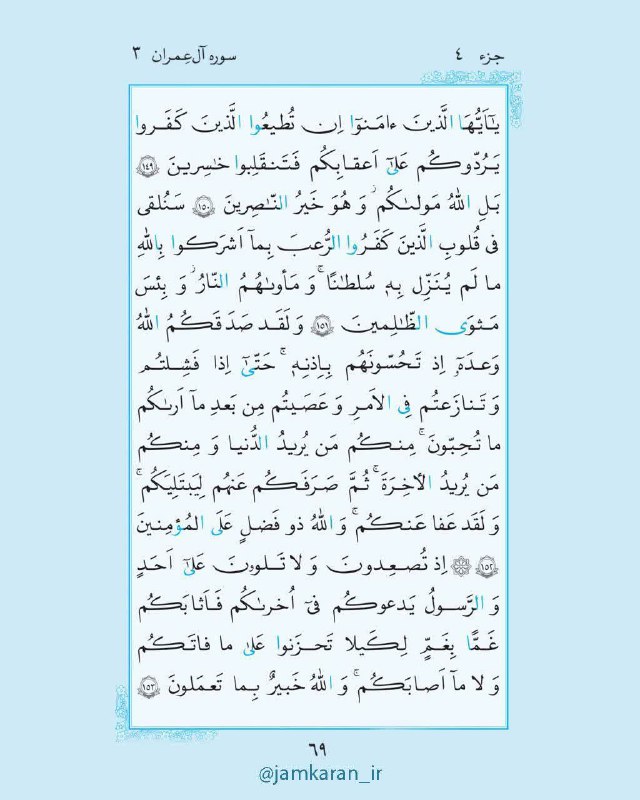 جزء ٤ سوره آل‌عِمران ٣
يـٰٓاَيُّهَا الَّذينَ ءامَنوٓا اِن تُطيعُوا الَّذينَ كَفَـروا
يَـرُدّوكُم عَلىٰٓ اَعقـابِكُم فَـتَـنقَـلِبوا خاسِرينَ ﴿١٤٩﴾
بَـلِ اللّٰهُ مَولىٰكُم ۖ وَ هُوَ خَيرُ النّـاصِرينَ ﴿١٥٠﴾ سَـنُلقى
فى قُلوبِ الَّذينَ كَفَرُوا الرُّعبَ بِمآ اَشرَكوا بِاللّٰهِ
ما لَم يُنَزِّل بِه۪ سُلطـٰنًا ۚ وَ مَأوىٰهُمُ النّارُ ۖ وَ بِئسَ
مَـثوَى الظّـٰلِمينَ ﴿١٥١﴾ وَ لَقَـد صَدَقَكُـمُ اللّٰهُ
وَعدَهٓۥ اِذ تَـحُسّونَهُم بِـاِذنِه۪ ۚ حَتّىٰٓ اِذا فَـشِلتُـم
وَ تَـنازَعتُم فِى الاَمـرِ وَ عَصَيتُم مِن بَعدِ مآ اَرىٰكُم
ما تُحِبّونَ ۚ مِنكُم مَن يُريدُ الدُّنيا وَ مِنكُم
مَن يُريدُ الآخِرَةَ ۚ ثُمَّ صَرَفَكُم عَنهُم لِيَبتَلِيَكُم ۚ
وَ لَقَد عَفا عَنكُم ۚ وَ اللّٰهُ ذو فَضلٍ عَلَى المُؤمِنينَ
﴿١٥٢﴾ ۞ اِذ تُصعِدونَ وَ لا تَلوۥنَ عَلىٰٓ اَحَدٍ
وَ الرَّسولُ يَدعوكُم فىٓ اُخرىٰكُم فَـاَثابَكُم
غَـمًّا بِغَـمٍّ لِـكَيلا تَحزَنوا عَلىٰ ما فاتَكُم
وَ لا مآ اَصابَكُم ۚ وَ اللّٰهُ خَبيرٌ بِما تَعمَلونَ ﴿١٥٣﴾
٦٩
@jamkaran_ir